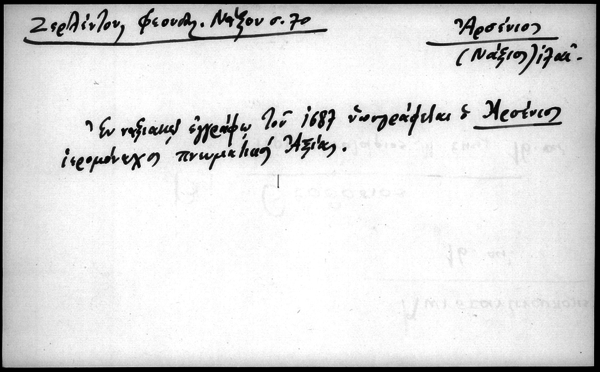 Ζερλέντου, Φεουδ. Νάξου σ. 70
Ἀρσένιος
(Νάξιος) ιζ' αἰ.
Ἐν ναξιακῷ ἐγγράφῳ τοῦ 1687 ὑπογράφεται ὁ Ἀρσένιος
ἱερομόναχος πνευματικός Ἀξίας.